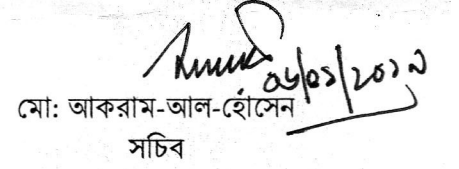 ০৬/০১/২০১৯
মো: আকরাম-আল-হোঁসেন
সচিব